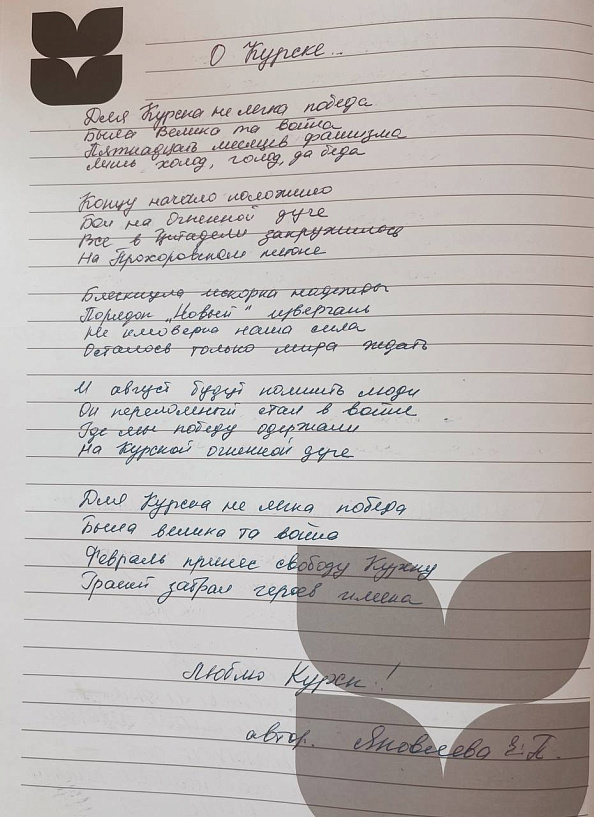 О Курске...
Для Курска не легка победа
Была велика та война
Пятнадцать месяцев фашизма
Лишь холод, голод, да беда
Концу начало положило
Бои на Огненной дуге
Все в Цитадели закружилось
На Прохоровском
Блеснущла искорка надежды
Порядок „Новый“ изверган
Не имоверна наша сила
Осталось только мира ждать
И август будут помнить люди
Он переломный стал в войне
Где мы победу одержали
На Курской огненной дуге
Для Курска не легка победа
Была велика та война
Февраль принес свободу Курску
Гранит забрал героев имена
Люблю Курск!
автор. Яковлева Е.П.